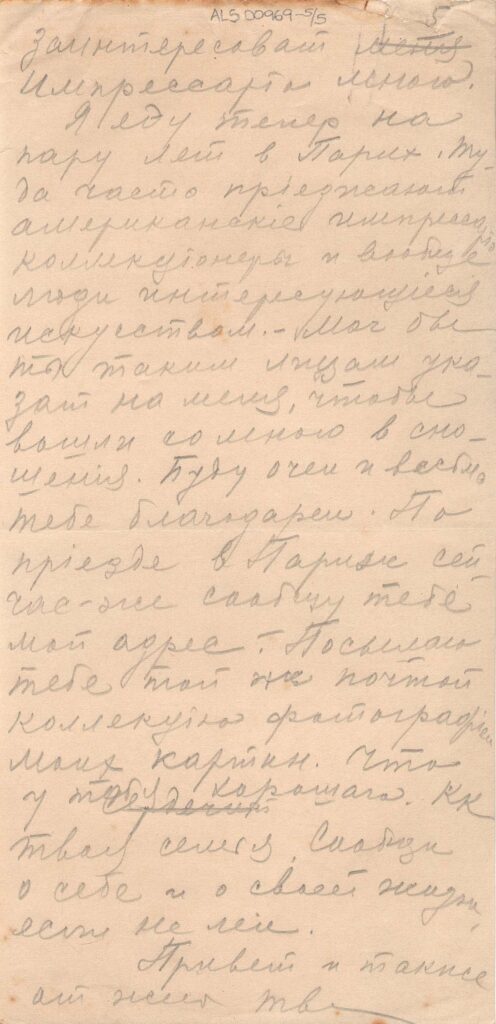 ALS D0969-5/5
5
заинтересоват меня
Импрессарio мною.
Я еду тепер на
пару лет в Париж. Ту-
да часто прiезжают
американскiе импресса
коллекцiонеры и вообще
люди интересующiеся
искусством. - Мог бы
ты таким лицам ука-
зат на меня, чтобы
вошли со мною в сно-
шенiя. Буду очен и весьма
тебе благодарен. По
прiезде в Париж сей
час-же сообщу тебе
мой адрес. - Посылаю
тебе той же почтой
коллекцiю фотографiй
моих картин. Что
у тебя хорошаго. Кк
твоя семья. Сообщи
о себе и о своей жизни,
если не лен.
Привет и также
от жены